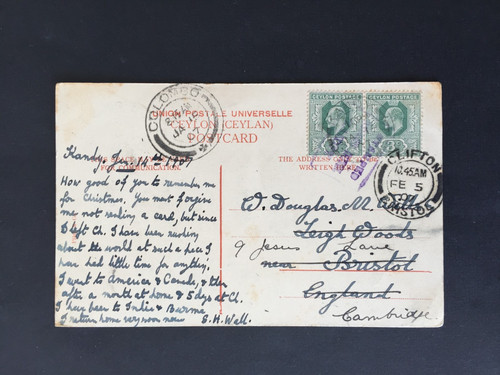 COLOMBO
UNION POSTALE UNIVERSELLE
CEYLON (CEYLAN)
POSTCARD
CEYLON POSTAGE
CEYLON POSTAGE
THE ADDRESS
WRITTEN
FOR COMMUNICATION.
CLIFTON
10.45AM
FE 5
BRISTOL
Kandy, Jan. 14th 1907
How good of you to remember me
for Christmas. You must forgive
me not sending a card, but since
I left Ch. I have been rushing
about the world at such a pace I
have had little time for anything.
I went to America & Canada, & then
after a month at home & 5 days at Ch.
I have been to India & Burma
I return home very soon now
S. H. Wall.
W. Douglas M.
Leigh Woods
9 Jesus Lane
near Bristol
England
Cambridge.